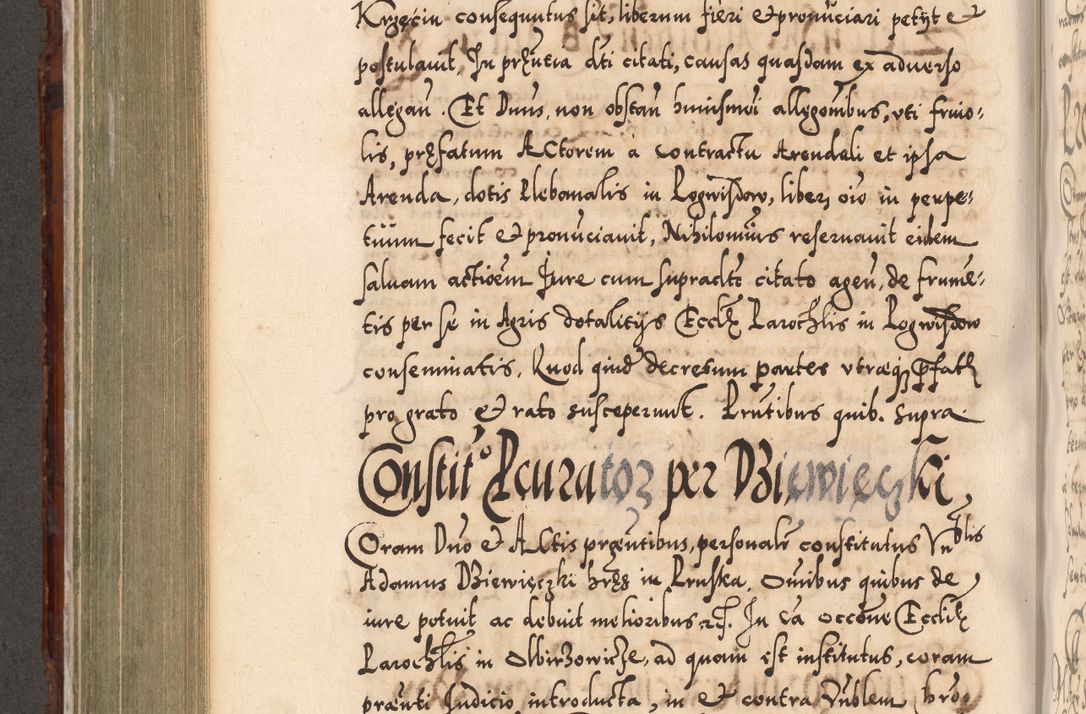 Krzęcin consequutus sit, liberum fieri et pronūciari petÿt et
postulauit, In prēntia dti citati, causas quasdam ex aduerso
allegāń. Et Dnus, non obstań huiusmōi allegōnibus, vti friuo-
lis, prefatum Actorem a contractu Arendæ et ipsa
Arenda, dotis Plebanalis in Rogwisdow, liberū oīo in perpe-
tuum fecit et pronūciauit, Nihilomīus reseruauit eidem
saluam actiōem Iure cum supradto citato ageń, de frumē-
tis per se in Agris dotalitijs Ecclę Parochlis in Rogwisdow
conseminatis. Quod quidē decretum partes vtræq pfatę
pro grato et rato susceperunt. Prntibus quib. supra
Constit⁰ Pcurator per Dziewięczki
Coram Dno et Actis prentibus, personalr constitutus Vnblis
Adamus Dziewięczki hręs in Pruska, Omībus quibus de
iure potuit ac debuit melioribus rcť. In ea occōne Ecclię
Parochlis in Olbirzowicze, ad quam est institutus, coram
prænti Iudicio introducta, in et contra Vnblem